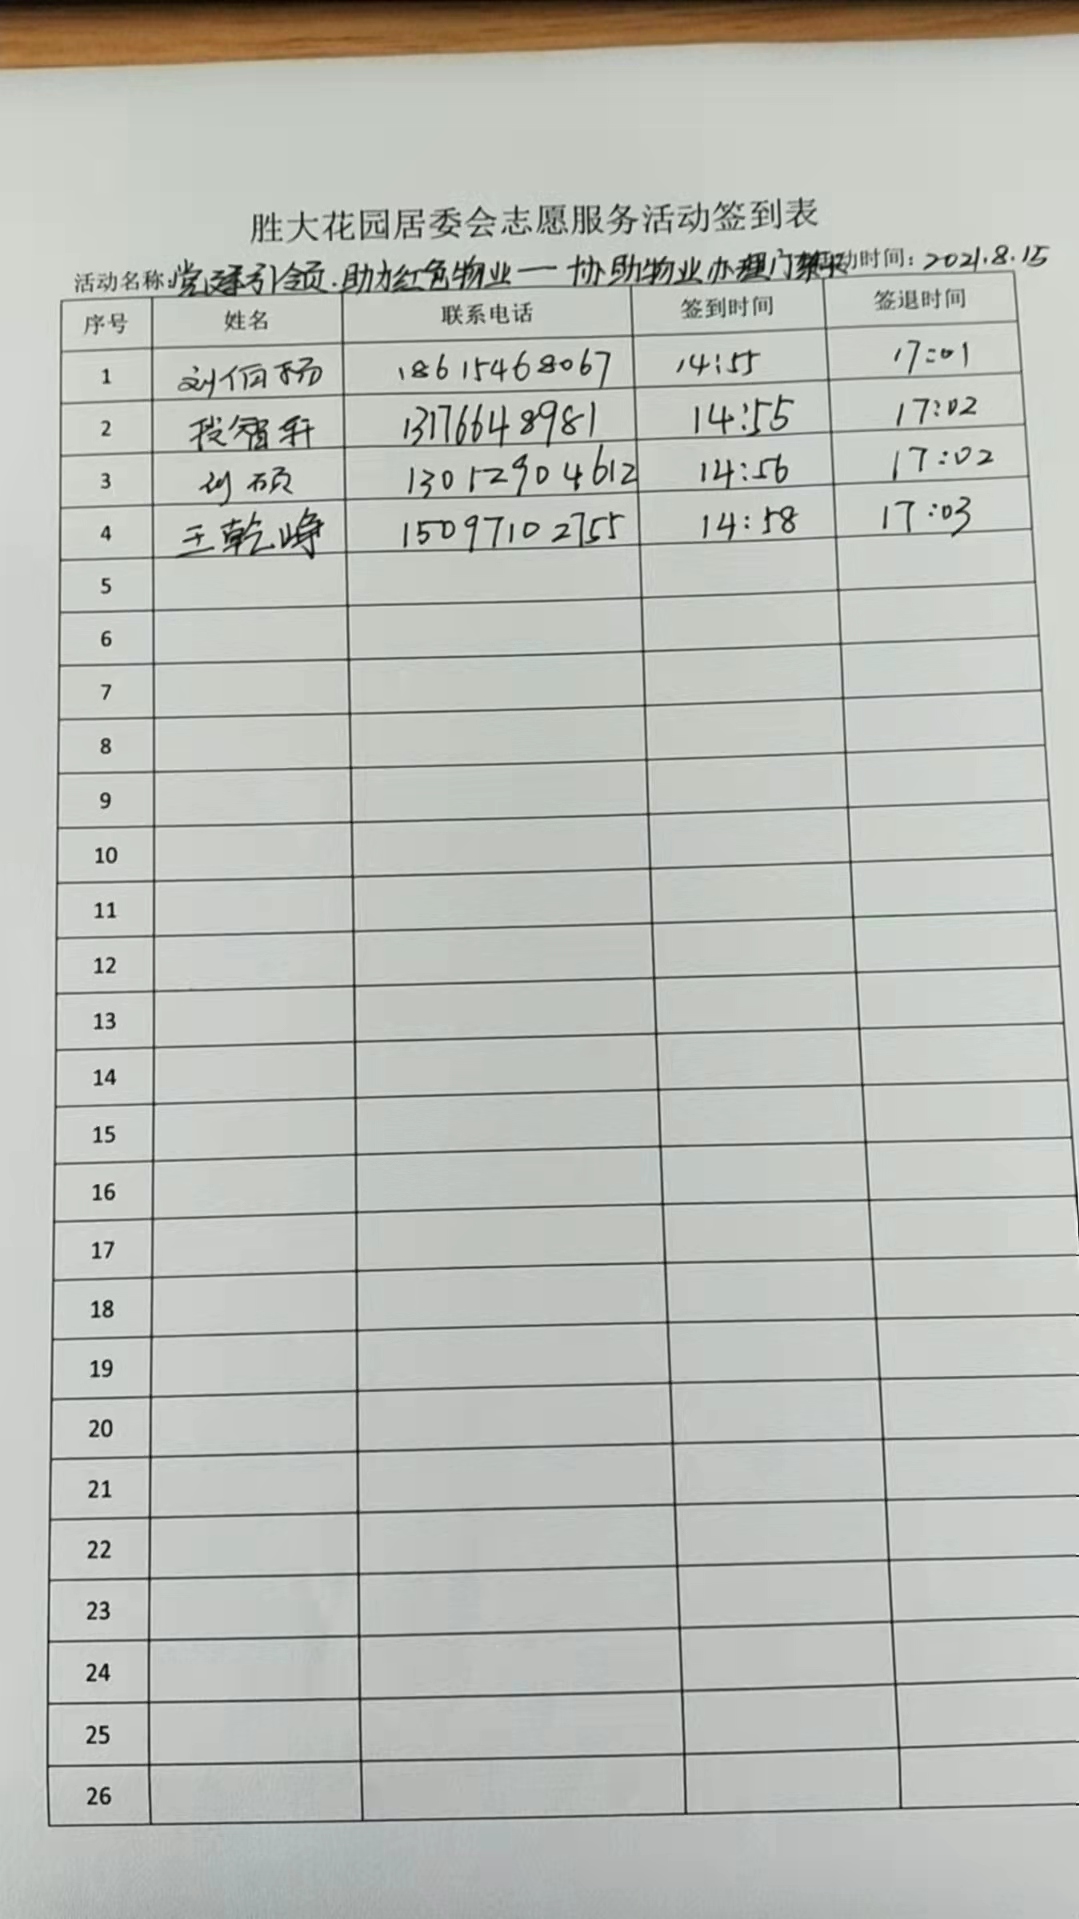 胜大花园居委会志愿服务活动签到表
活动名称:党建引领.助力红色物业一协助物业办理门禁卡 活动时间:2021.8.15
序号 姓名 联系电话 签到时间 签退时间
1 刘伯杨 18615468067 14:55 17:01
2 段智轩 13176648981 14:55 17:02
3 刘硕 13012904612 14:56 17:02
4 王乾峥 15097102755 14:58 17:03
5
6
7
8
9
10
11
12
13
14
15
16
17
18
19
20
21
22
23
24
25
26